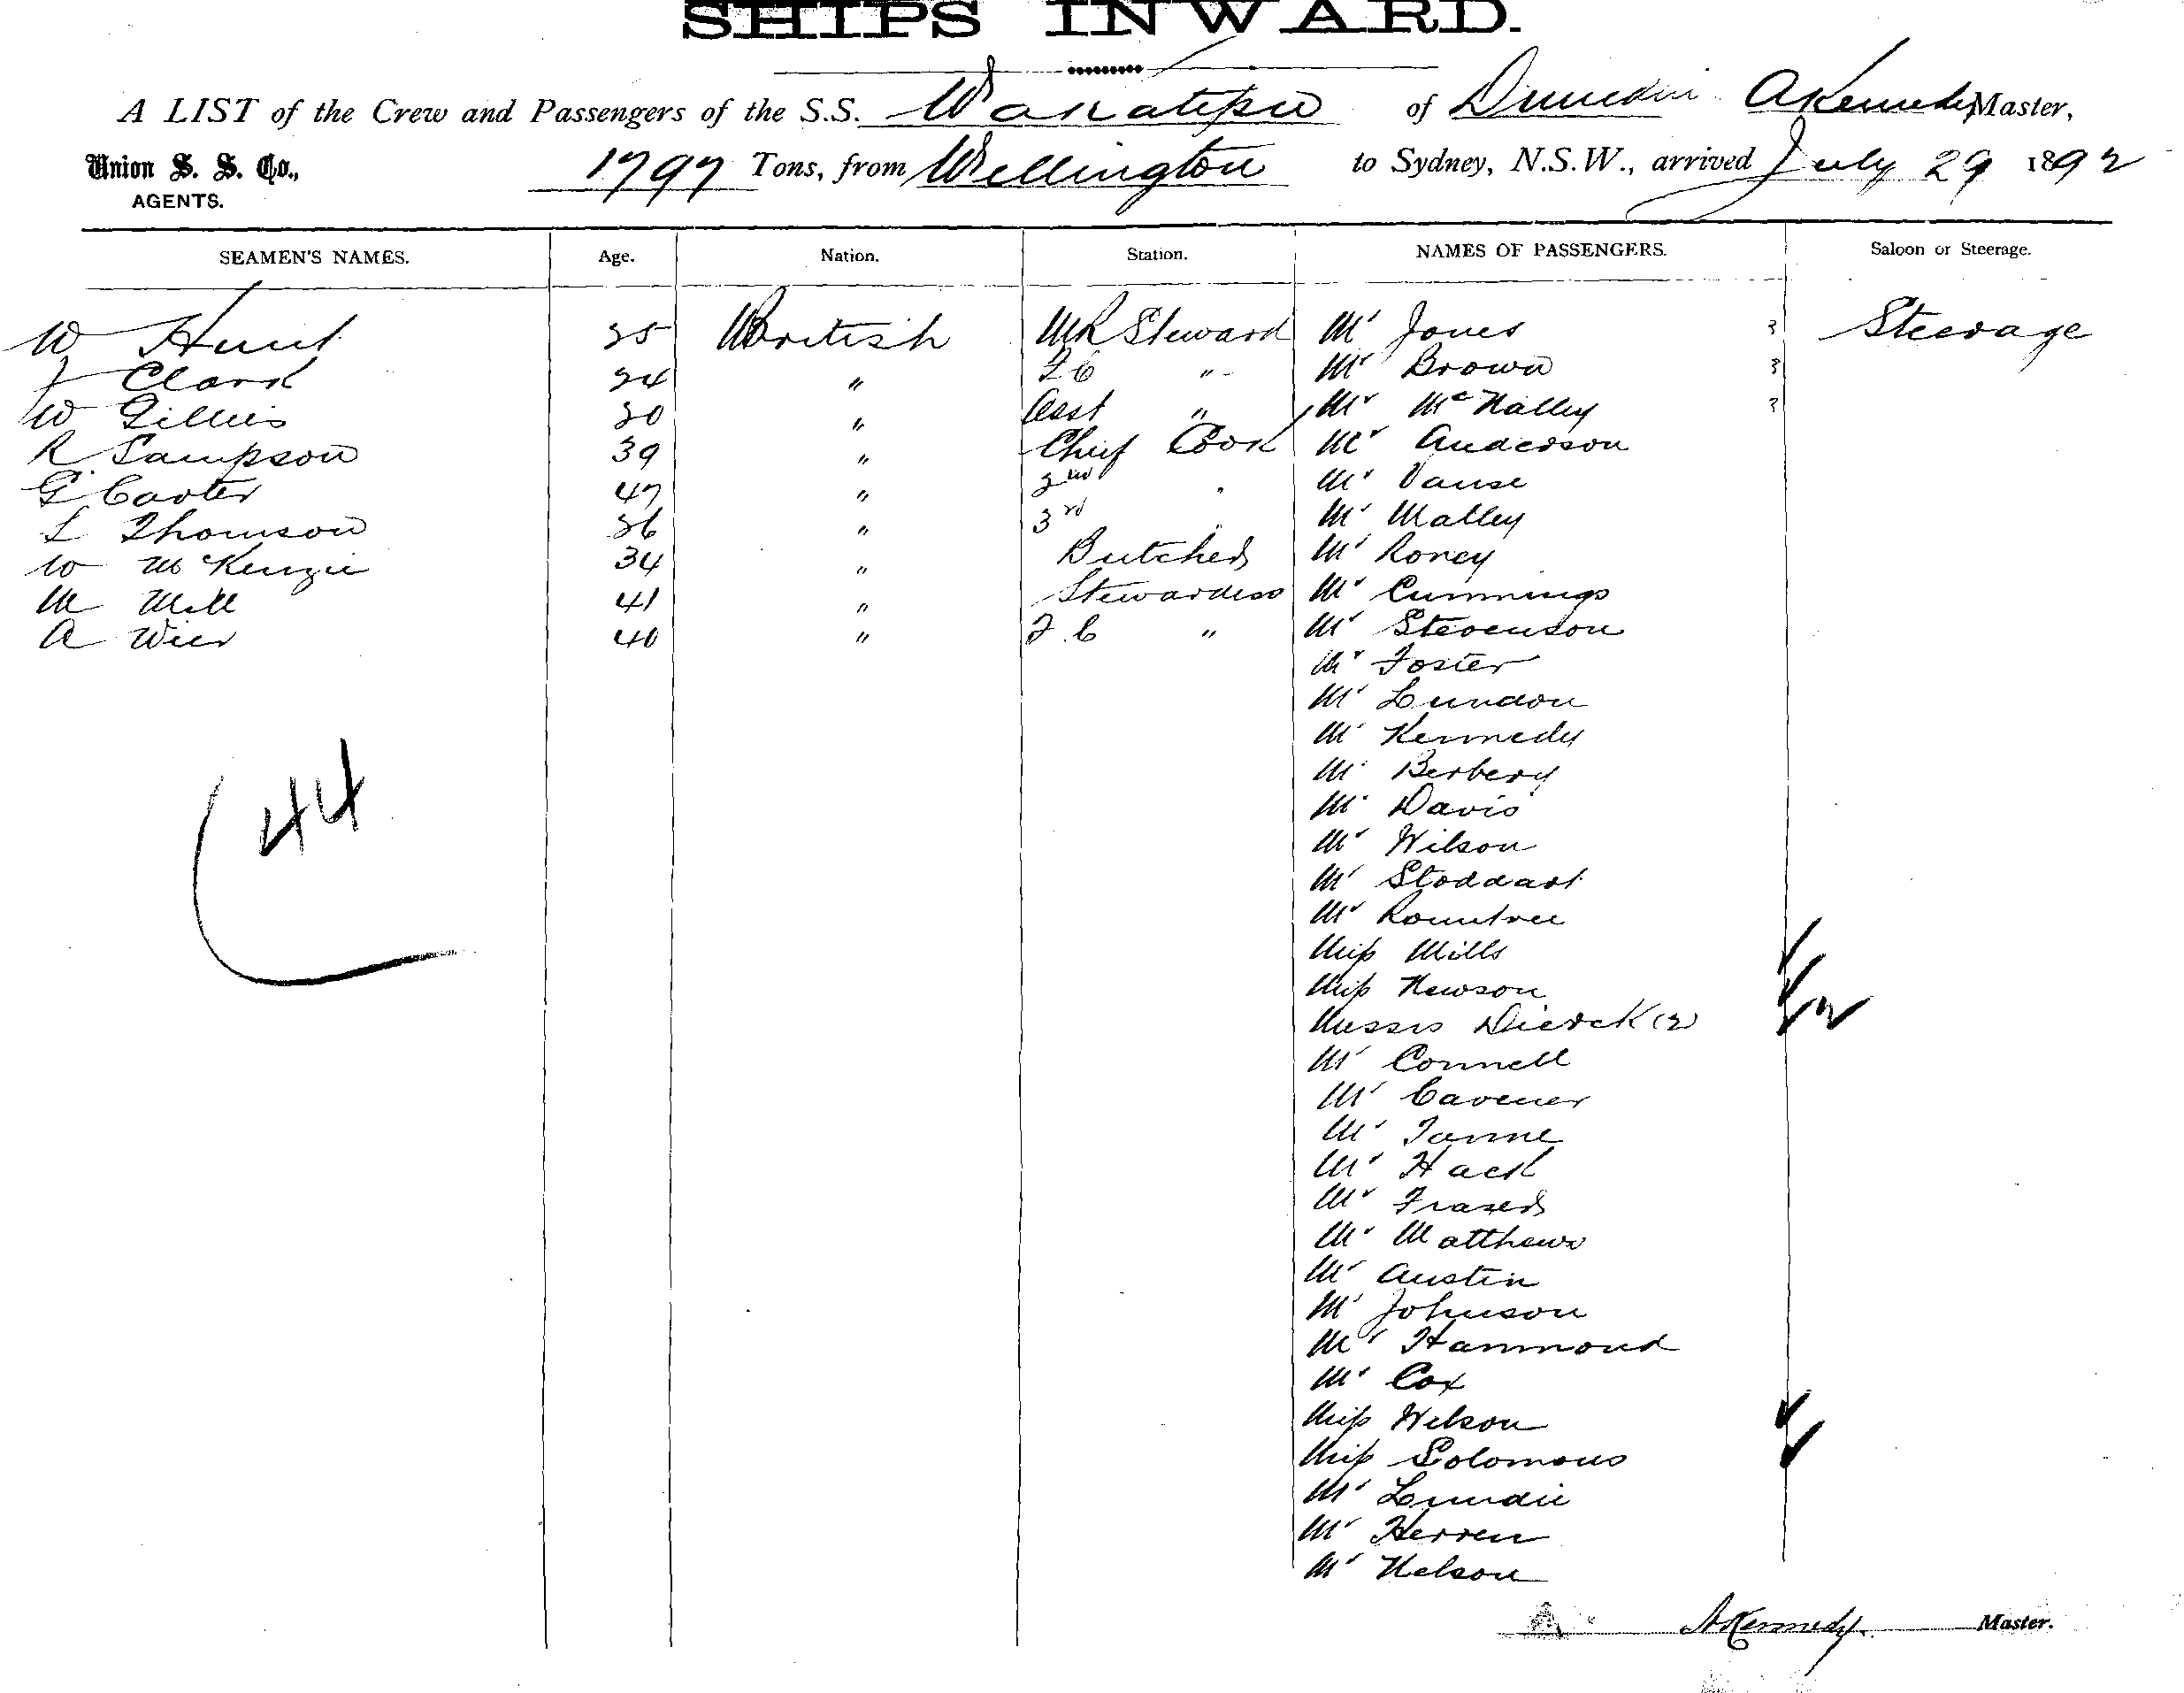 SHIPS INWARD.
A LIST of the Crew and Passengers of the S.S. Wakatipu of Dunedin A Kennedy Master,
Union S. S. Co., 1797 Tons, from Wellington to Sydney, N.S.W., arrived July 29 1892
AGENTS.
SEAMEN'S NAMES. Age. Nation. Station. NAMES OF PASSENGERS. Saloon or Steerage.
W Hunt 25 British Steward Mr Jones Steerage
J Clark 24 " F C " Mr Brown
W Gillies 20 " Asst " Mr McNalley
R Sampson 39 " Chief Cook Mr Anderson
G Carter 47 " 2nd " Mr Vause
L Thomson 26 " 3rd " Mr Malley
W McKenzie 34 " Butcher Mr Roney
M Mill 41 " Stewardess Mr Cummings
A Wier 40 " F.C " Mr Stevenson
Mr Foster
Mr Lundon
Mr Kennedy
Mr Berbery
Mr Davis
Mr Wilson
44 Mr Stoddart
Mr Rountree
Miss Mills
Miss Newson
Messrs Dierck (2) 2
Mr Connell
Mr Cavener
Mr
Mr Hack
Mr Fraser
Mr Matthews
Mr Austin
Mr Johnson
Mr Hammond
Mr Cox
Miss Wilson
Miss Solomons
Mr Lundie
Mr Herren
Mr Nelson
A Kennedy. Master.